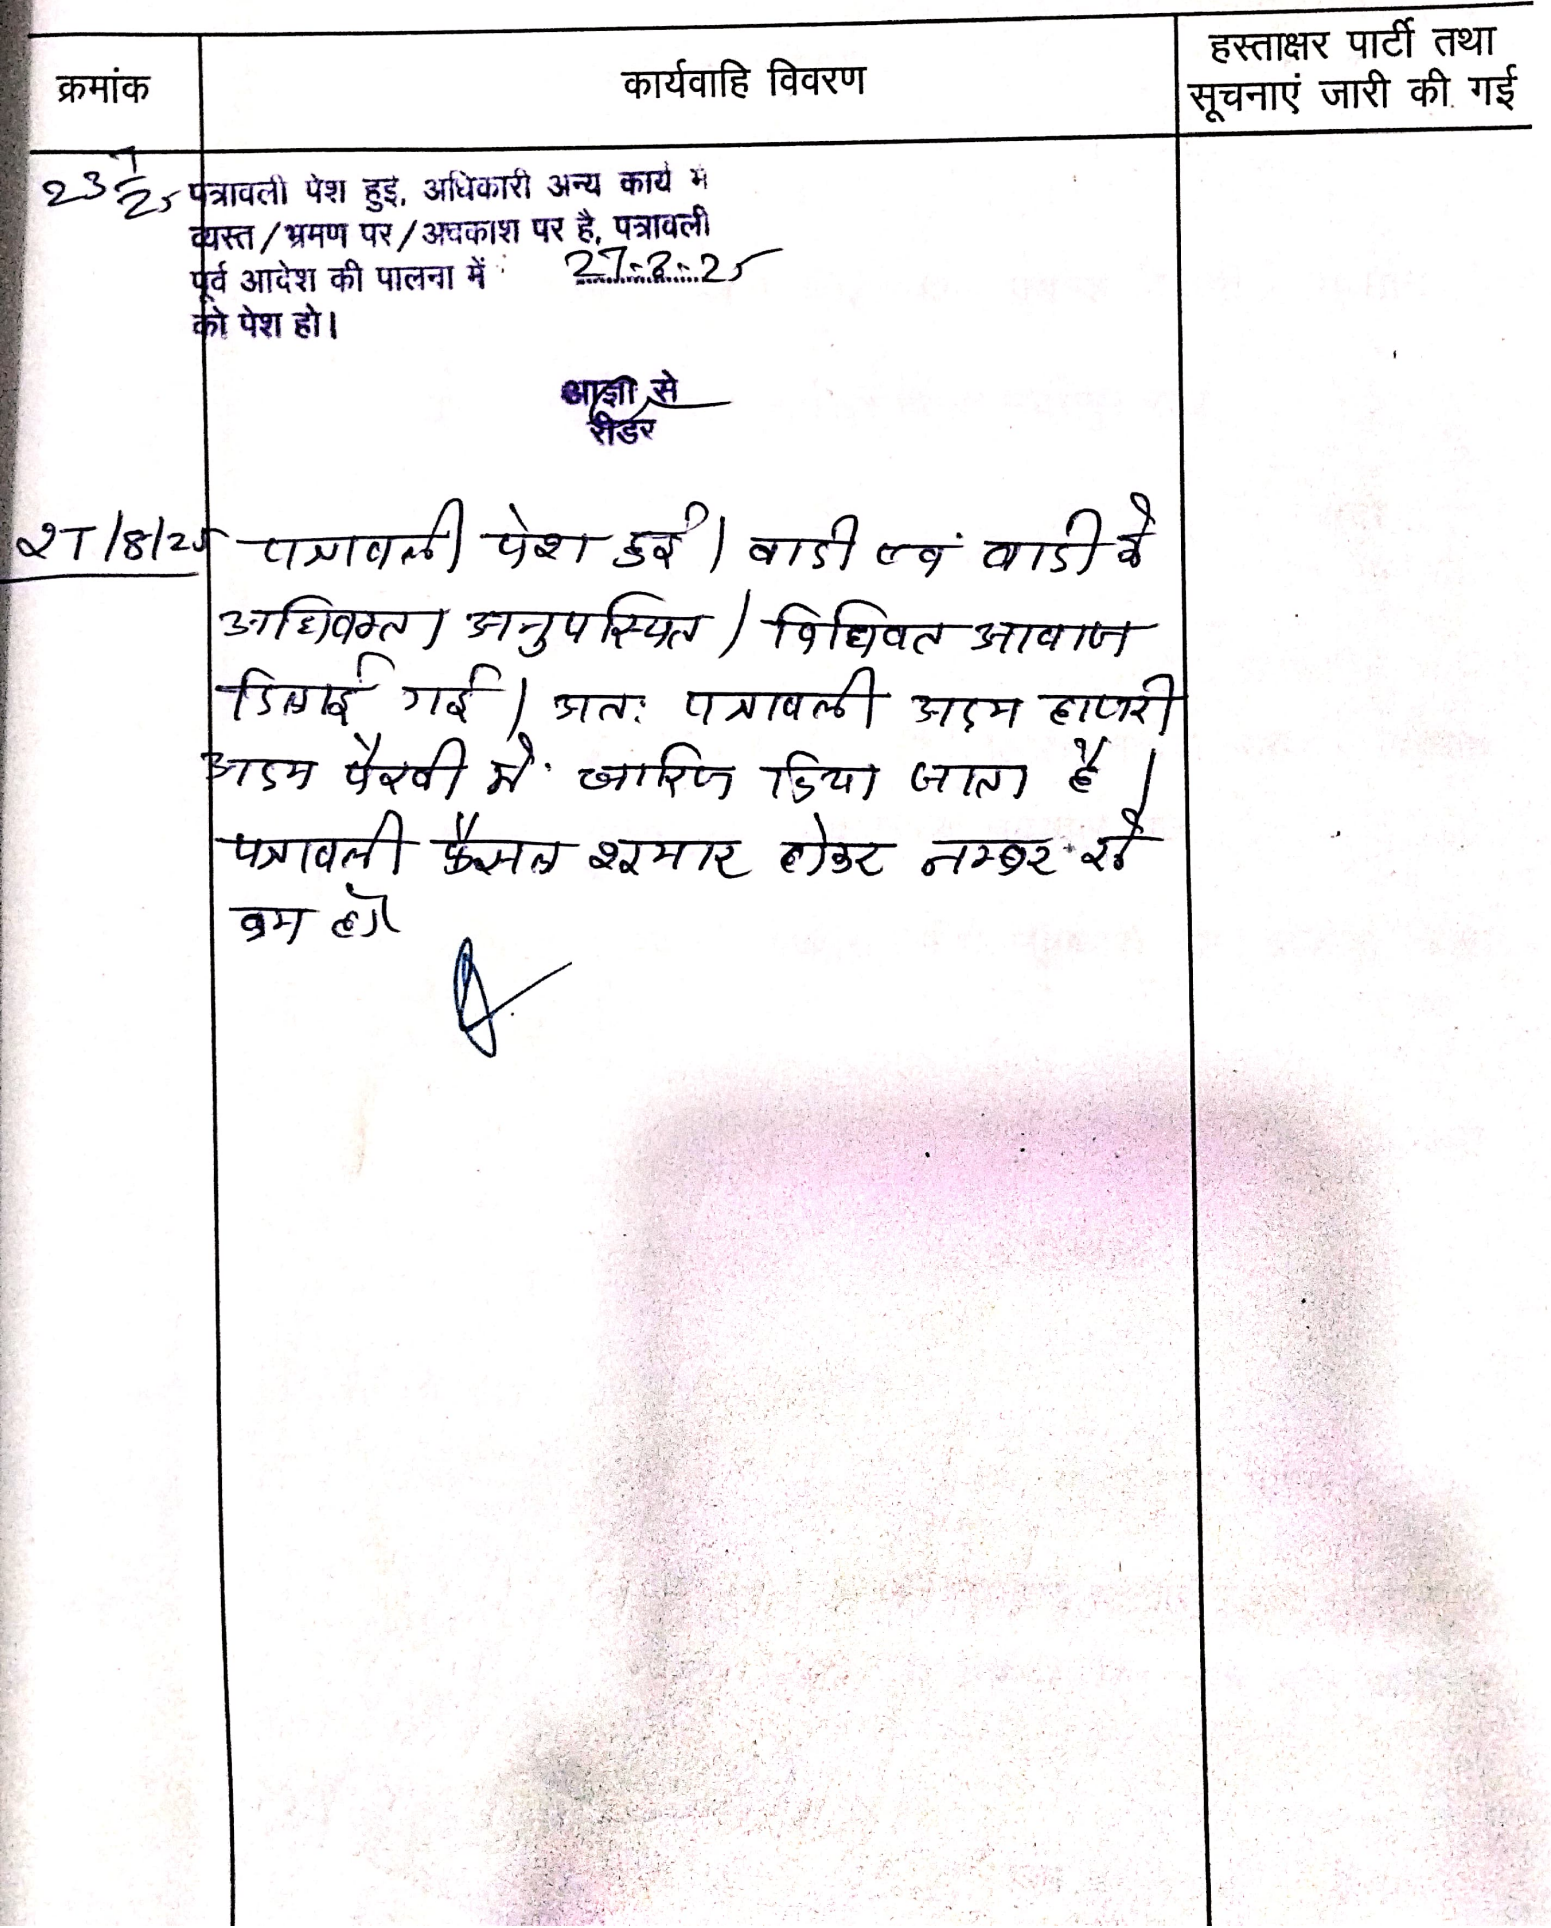 क्रमांक
कार्यवाहि विवरण
हस्ताक्षर पार्टी तथा
सूचनाएं जारी की गई
23/7/25 पत्रावली पेश हुई, अधिकारी अन्य कार्य में
व्यस्त/भ्रमण पर/अवकाश पर है, पत्रावली
पूर्व आदेश की पालना में 27-8-25
को पेश हो।
आज्ञा से
रीडर
27/8/25 पत्रावली पेश हुई। वादी एवं वादी के
अधिवक्ता अनुपस्थित। विधिवत आवाज
दिलाई गई। अतः पत्रावली अदम हाजरी
अदम पैरवी में खारिज किया जाता है।
पत्रावली फैसल शुमार होकर नम्बर से
कम हो